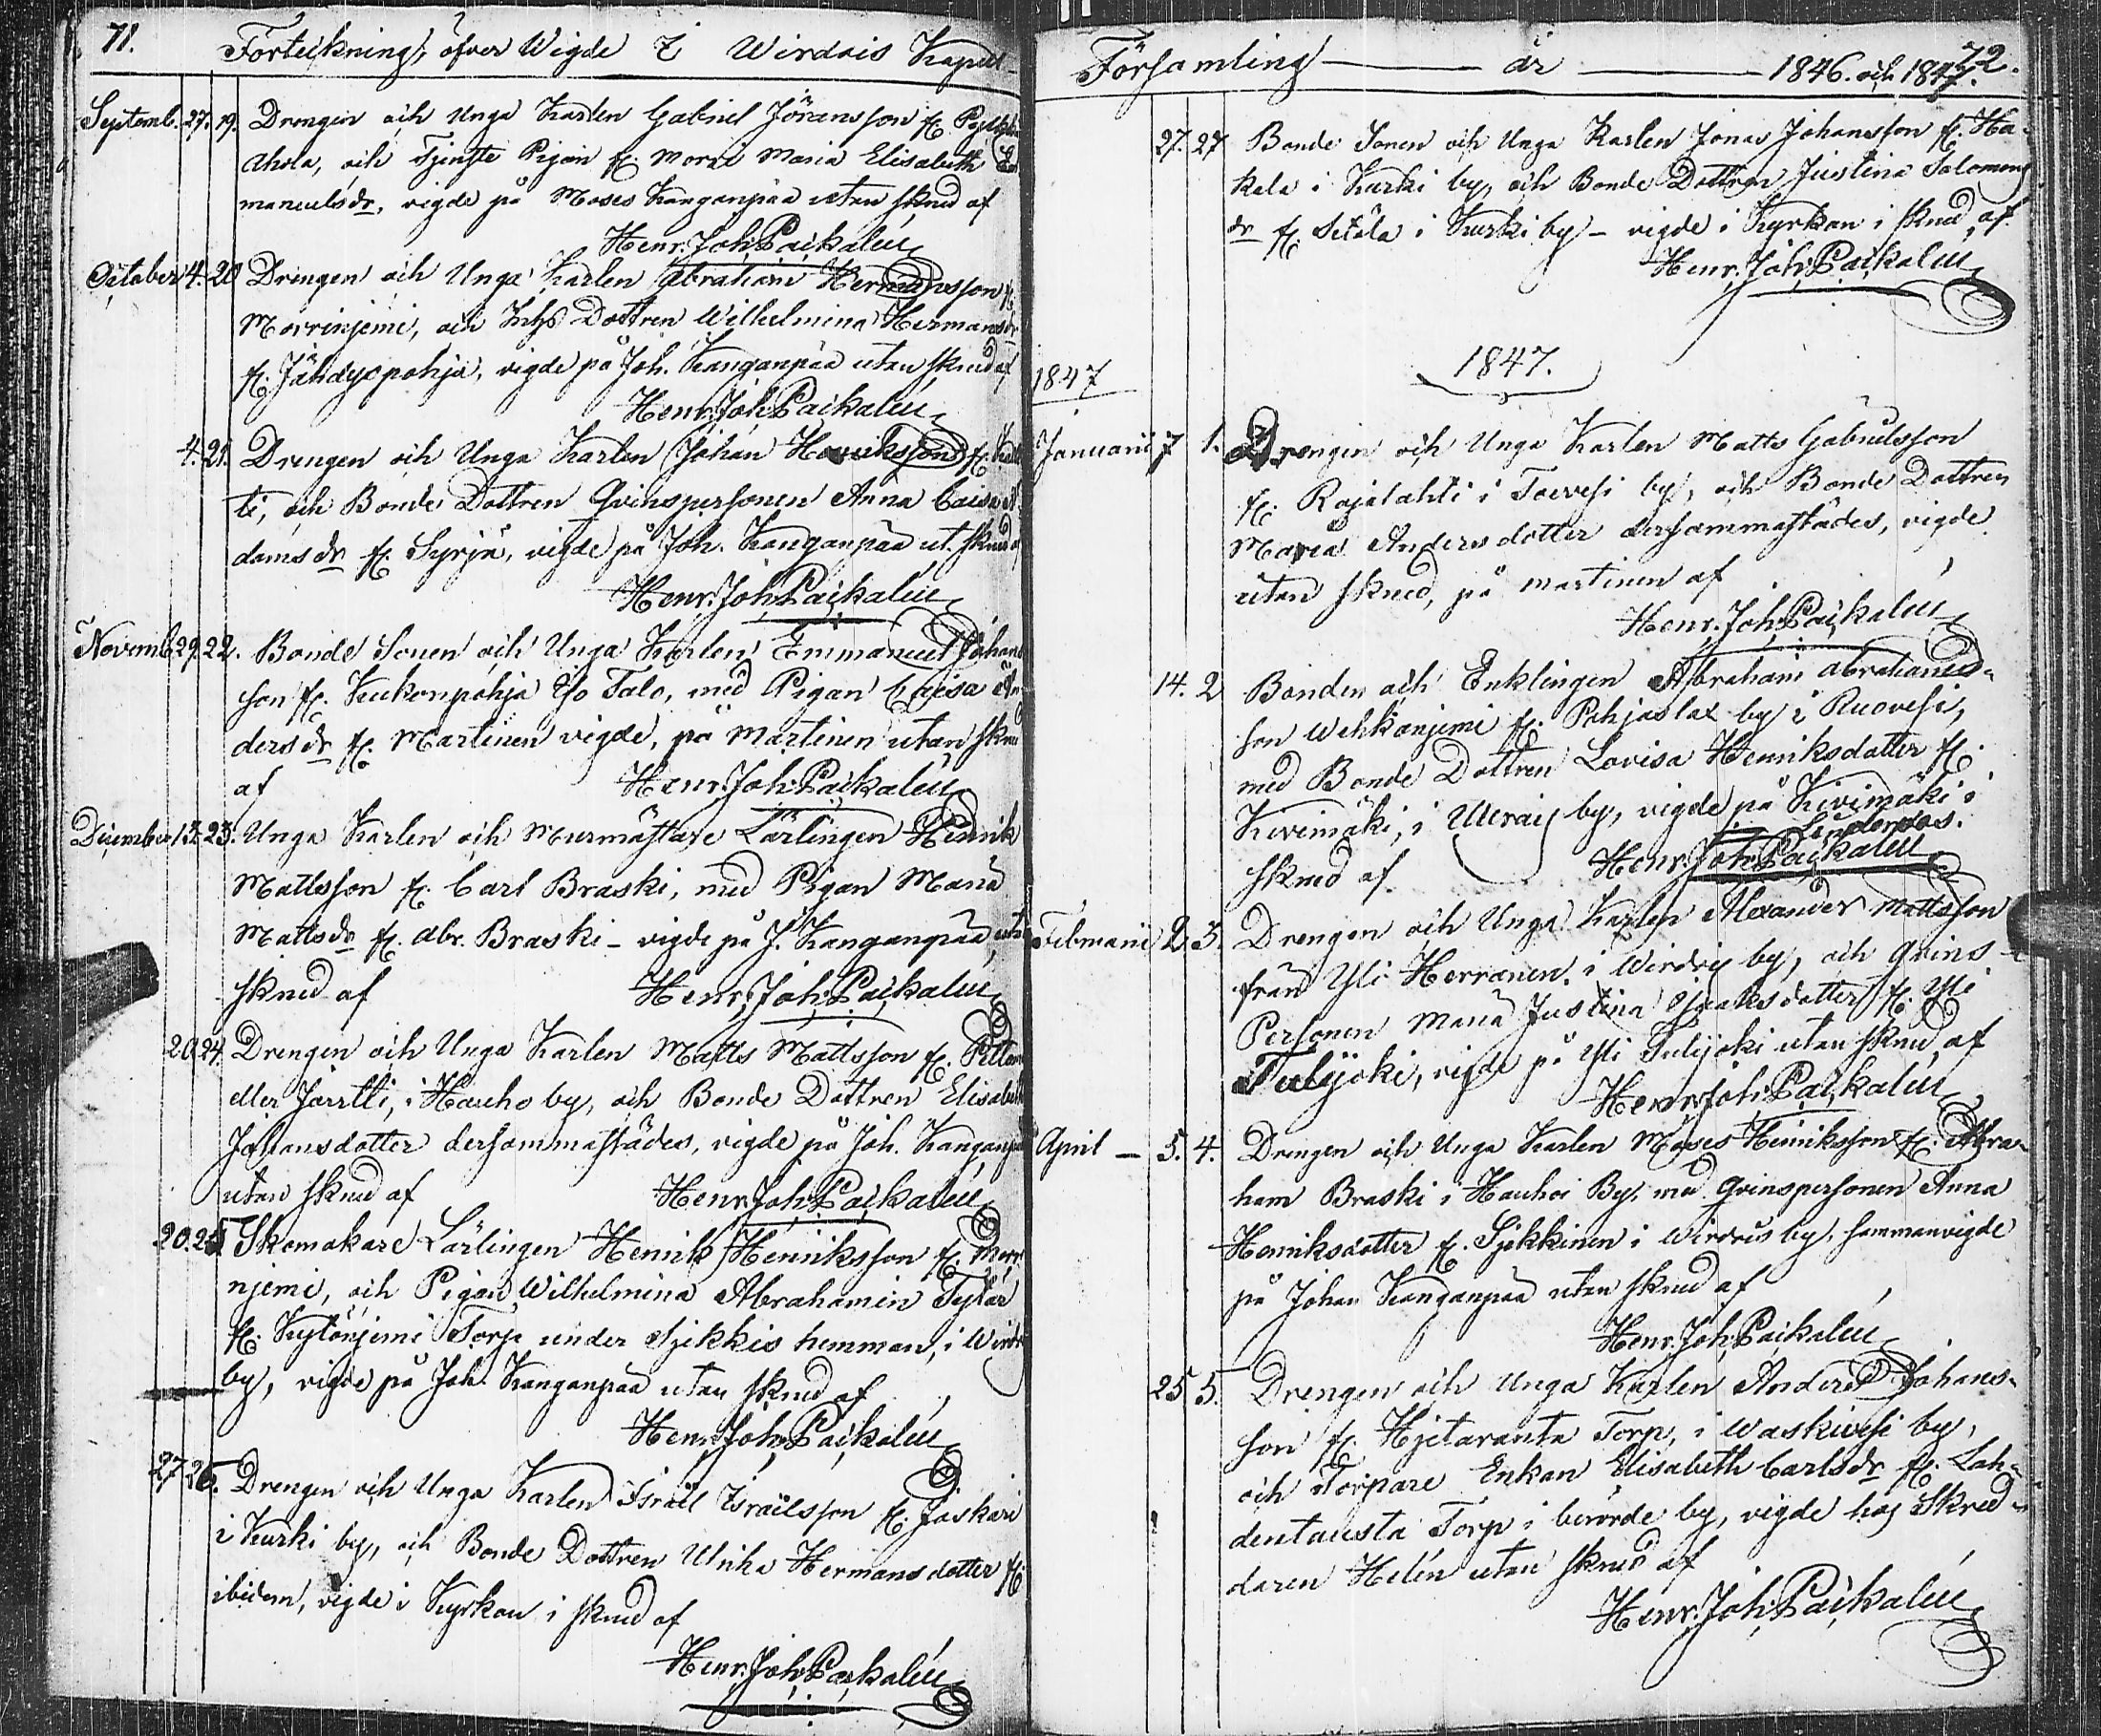 71. Förteckning, öfver Wigde i Wirdois Kapell
Septemb. 27. 19. Drengen och Unga Karlen Gabriel Jöransson fr.
ahola, och Tjenste Pigan fr. Morri Maria Elisabeth Em
manuelsdr, vigde på Moses Kanganpää utan skrud af
Henr. Joh. Paikalén
October 4. 20 Drengen och Unga Karlen Abraham Hermansson fr
Morrinjemi, och Inhs Dottren Wilhelmina Hermansdr
fr. Jähdyspohja, vigde på Joh. Kanganpää utan skrud af
Henr. Joh. Paikalén
4. 21. Drengen och Unga Karlen Johan Henriksson fr.
ti, och Bonde Dottren Qvinspersonen Anna Caisa A
damsdr fr. Syrjä, vigde på Joh. Kanganpää ut. skrud af
Henr. Joh. Paikalén
Novemb. 29. 22. Bonde Sonen och Unga Karlen Emmanuel Johans
son fr. Kukonpohja Iso Talo, med Pigan Caisa An
dersdr fr. Martinen vigde, på Martinen utan skrud
af Henr. Joh. Paikalén
December 13. 23. Unga Karlen och Murmästare Lärlingen Henrik
Mattsson fr. Carl Braski, med Pigan Maria
Mattsdr fr. Abr. Braski – vigde på J. Kanganpää, utan
skrud af Henr. Joh. Paikalén
20. 24. Drengen och Unga Karlen Matts Mattsson fr.
eller Jäertti, i Hauho by, och Bonde Dottren Elisabeth
Johansdotter dersammastädes, vigde på Joh. Kanganpää
utan skrud af Henr. Joh. Paikalén
20. 25. Skomakare Lärlingen Henrik Henriksson fr. Morri
njemi, och Pigan Wilhelmina Abrahamin Tytär
fr. Kytönjemi Torp under Sjekkis hemman, i Wirdois
by, vigde på Joh. Kanganpää utan skrud af
Henr. Joh. Paikalén
27 26. Drengen och Unga Karlen Israel Israelsson fr. Jäskäri
i Kurki by, och Bonde Dottren Ulrika Hermansdotter fr.
ibidem, vigde i Kyrkan i skrud af
Henr. Joh. Paikalén
Församling — år — 1846. och 1847. 72.
27. 27 Bonde Sonen och Unga Karlen Jonas Johansson fr. Ha-
kala i Kurki by, och Bonde Dottren Justina Salomons
dr fr. Setälä i Kurki by – vigde i Kyrkan i skrud, af
Henr. Joh. Paikalén
1847.
1847
Januarii 7 1. Drengen och Unga Karlen Matts Gabrielsson
fr. Rajalahti i Toivesi by, och Bonde Dottren
Maria Andersdotter dersammastädes, vigde
utan skrud, på Martinen af
Henr. Joh. Paikalén
14. 2 Bonden och Enklingen Abraham Abrahams-
son Wehkanjemi fr. Pohjaslax by i Ruovesi,
med Bonde Dottren Lovisa Henriksdotter fr.
Kivimäki, i Ulvais by, vigde på Kivimäki i
skrud af Henr. Joh. Paikalén
Februarii 2 3. Drengen och Unga Karlen Alexander Mattsson
från Yli Herranen. i Wirdois by, och Qvins-
Personen Maria Justina Isaksdotter fr. Yli
Tulijoki, vigde på Yli Tulijoki utan skrud, af
Henr. Joh. Paikalén
April — 5. 4. Drengen och Unga Karlen Moses Henriksson fr. Abra-
ham Braski i Hauhoi By, med Qvinspersonen Anna
Henriksdotter fr. Sjekkinen i Wirdois by, sammanvigde
på Johan Kanganpää utan skrud af
Henr. Joh. Paikalén
25 5. Drengen och Unga Karlen Anders Johans-
son fr. Hjetaranta Torp, i Waskivesi by,
och Torpare Enkan Elisabeth Carlsdr fr. Lah-
dentausta Torp i berörde by, vigde hos Skred-
daren Helén utan skrud af
Henr. Joh. Paikalén